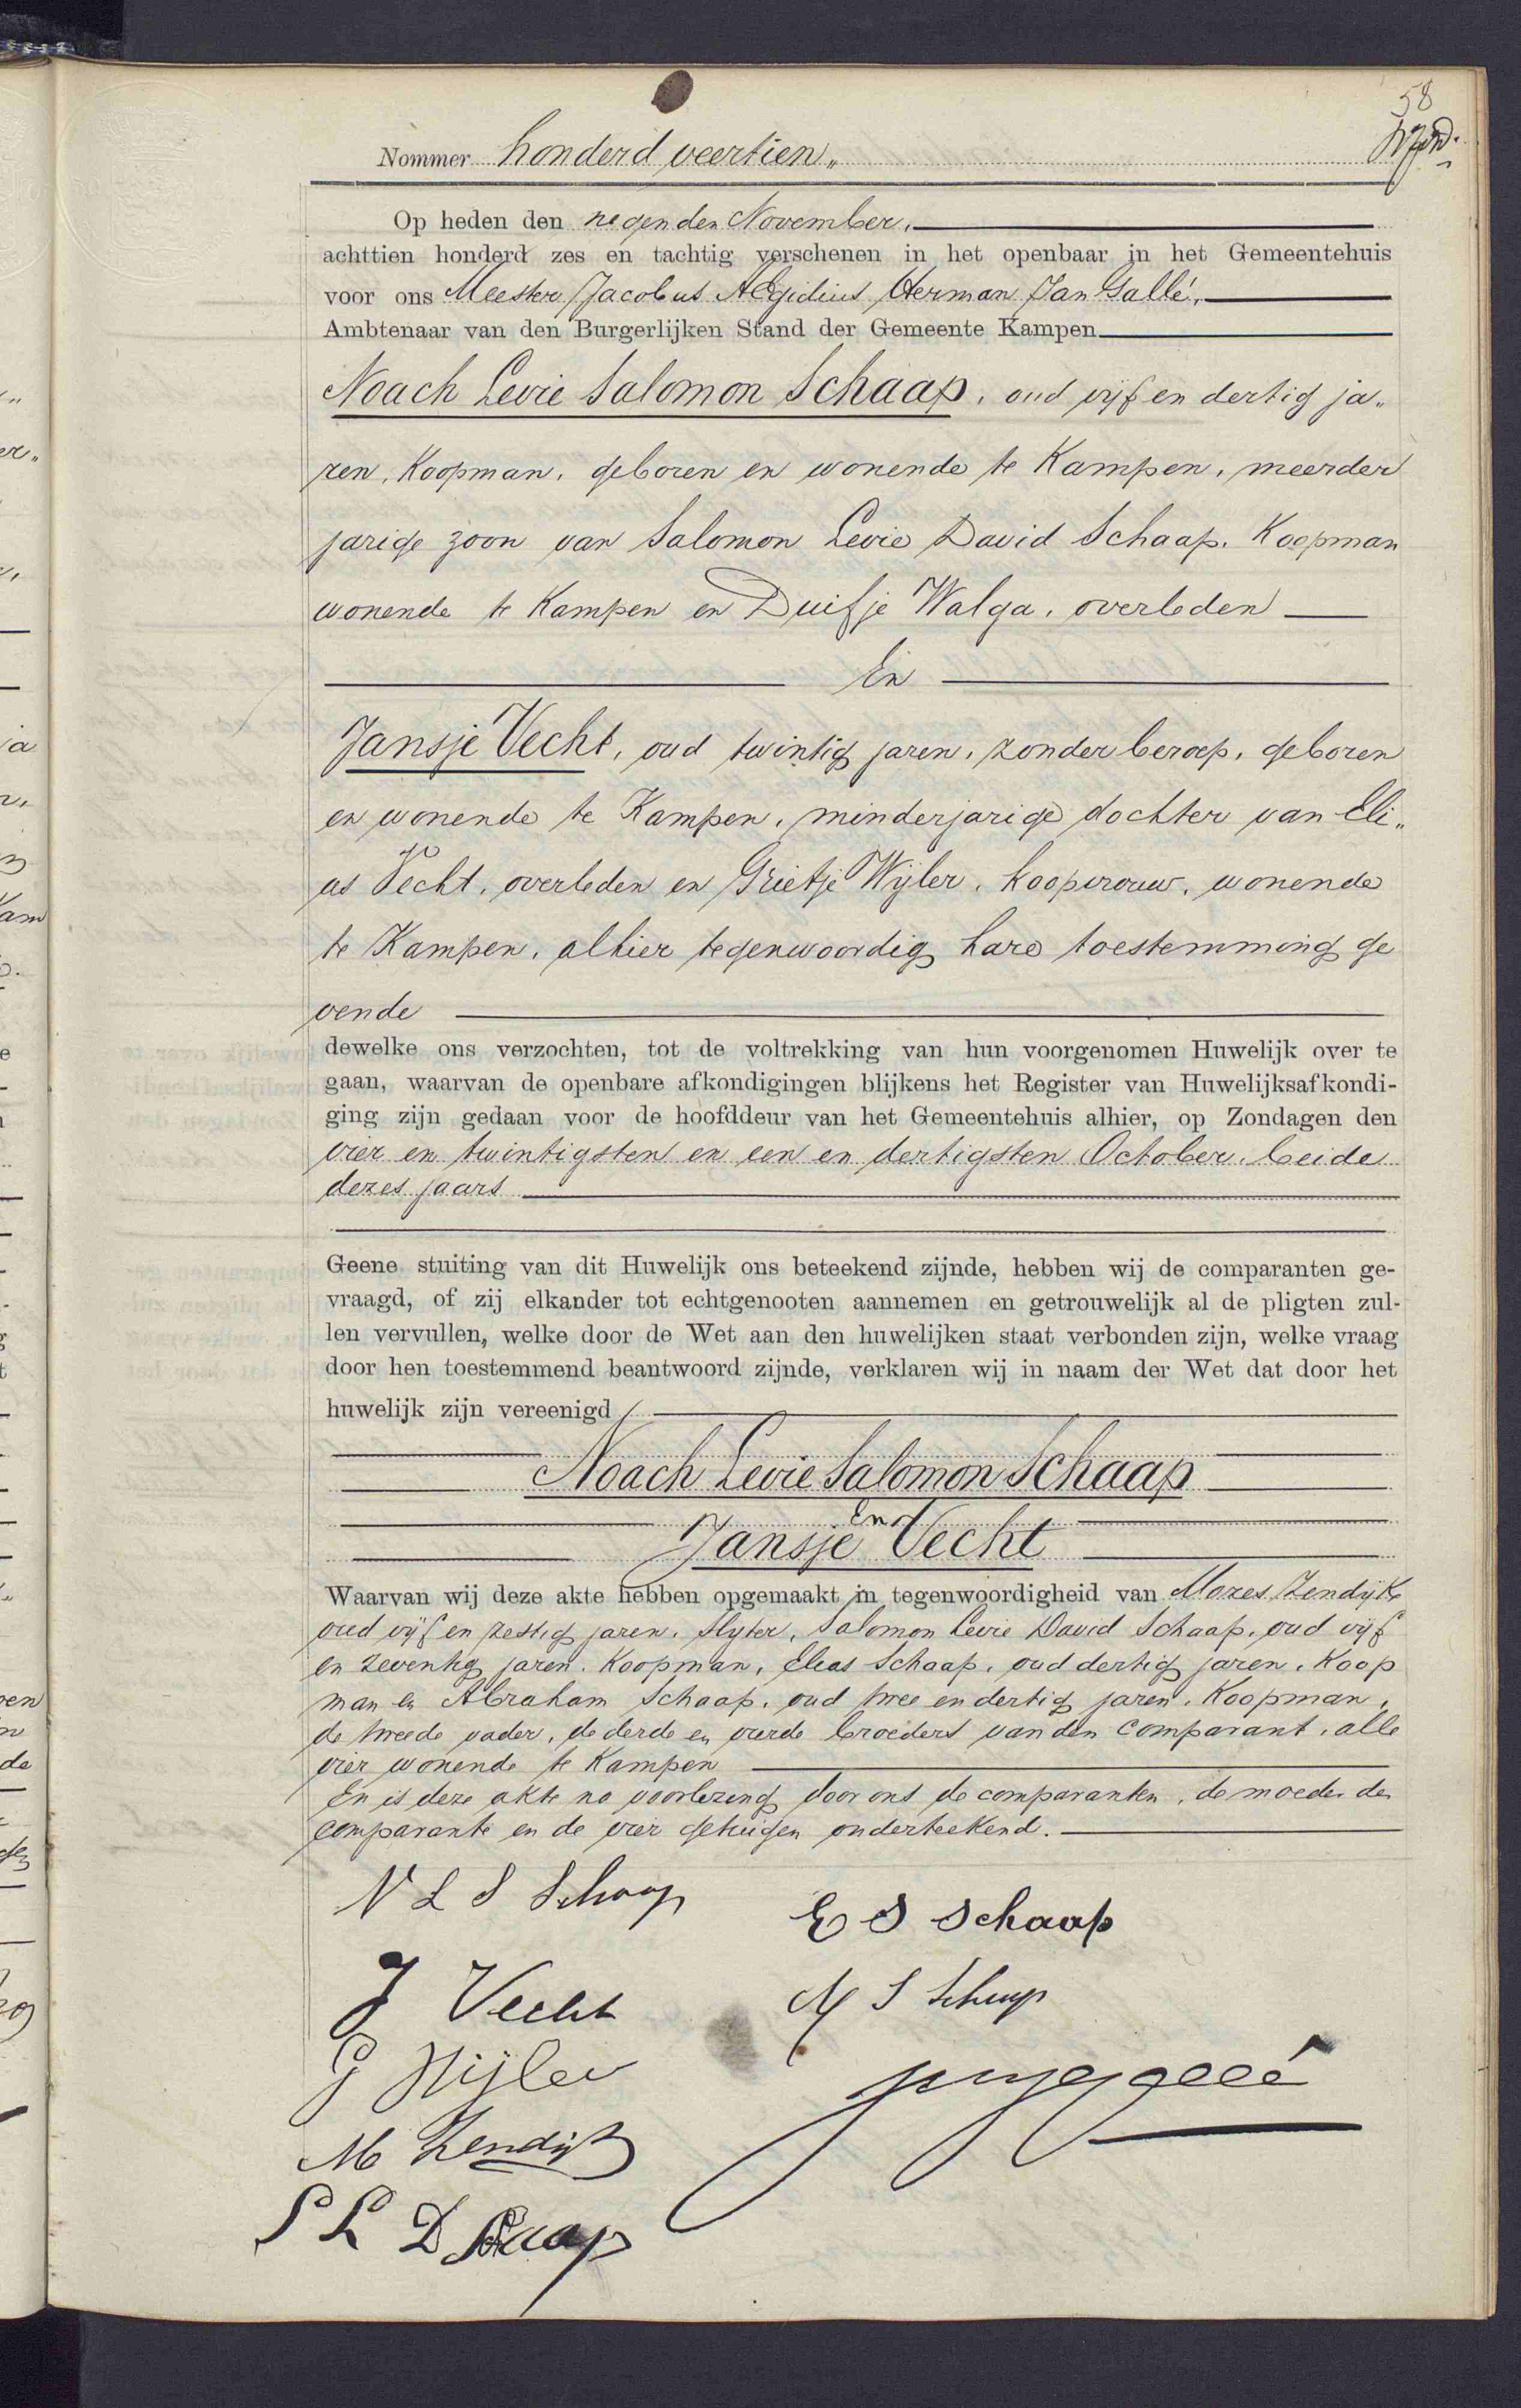 58
Nommer honderd veertien„
Op heden den negenden November,
achttien honderd zes en tachtig verschenen in het openbaar in het Gemeentehuis
voor ons Meester Jacobus AEgidius Herman Jan Gallé,
Ambtenaar van den Burgerlijken Stand der Gemeente Kampen
Noach Levie Salomon Schaap, oud vijf en dertig ja„
ren, Koopman, geboren en wonende te Kampen, meerder
jarige zoon van Salomon Levie David Schaap, Koopman
wonende te Kampen en Duifje Walga, overleden
En
Jansje Vecht, oud twintig jaren, zonder beroep, geboren
en wonende te Kampen, minderjarige dochter van Eli„
as Vecht, overleden en Grietje Wijler, koopvrouw, wonende
te Kampen, alhier tegenwoordig hare toestemming ge
vende
dewelke ons verzochten, tot de voltrekking van hun voorgenomen Huwelijk over te
gaan, waarvan de openbare afkondigingen blijkens het Register van Huwelijksafkondi-
ging zijn gedaan voor de hoofddeur van het Gemeentehuis alhier, op Zondagen den
vier en twintigsten en een en dertigsten October, beide
dezes jaars
Geene stuiting van dit Huwelijk ons beteekend zijnde, hebben wij de comparanten ge-
vraagd, of zij elkander tot echtgenooten aannemen en getrouwelijk al de pligten zul-
len vervullen, welke door de Wet aan den huwelijken staat verbonden zijn, welke vraag
door hen toestemmend beantwoord zijnde, verklaren wij in naam der Wet dat door het
huwelijk zijn vereenigd
Noach Levie Salomon Schaap
En
Jansje Vecht
Waarvan wij deze akte hebben opgemaakt in tegenwoordigheid van Mozes Zendijk
oud vijf en zestig jaren, slyter, Salomon Levie David Schaap, oud vijf
en zeventig jaren, Koopman, Elias Schaap, oud dertig jaren, Koop
man en Abraham Schaap, oud twee en dertig jaren, Koopman,
de tweede vader, de derde en vierde broeders van den comparant, alle
vier wonende te Kampen
En is deze akte na voorlezing door ons de comparanten, de moeder der
comparante en de vier getuigen onderteekend.
N L S Schaap
E S Schaap
J Vecht
S Schaap
G Wijler
M Zendijk
S L D Schaap